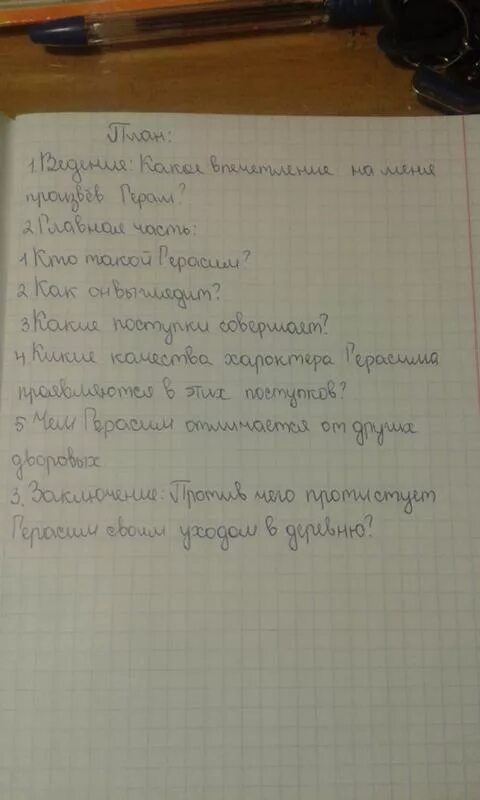 План:
1. Ведение: Какое впечетление на меня
произвёв Герам?
2 Главная часть:
1 Кто такой Герасим?
2 Как он выгледит?
3 Какие поступки совершает?
4 Какие качества характера Герасима
проявляются в этих поступков?
5 Чем Герасим отличается от других
дворовых.
3. Заключение: Против чего протистует
Герасим своим уходом в деревню?